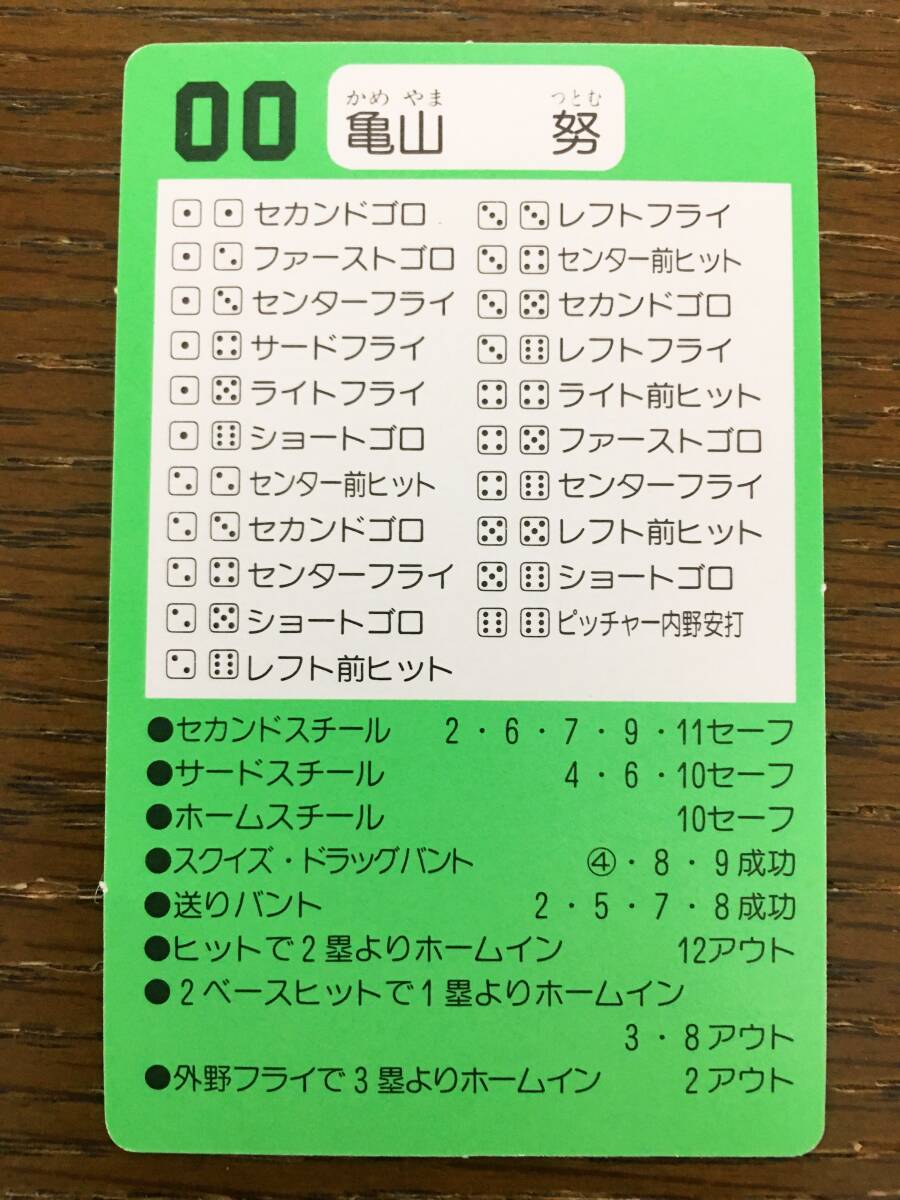 00
かめ やま つとむ
亀山 努
⚀ ⚀ セカンドゴロ
⚀ ⚁ ファーストゴロ
⚀ ⚂ センターフライ
⚀ ⚃ サードフライ
⚀ ⚄ ライトフライ
⚀ ⚅ ショートゴロ
⚁ ⚁ センター前ヒット
⚁ ⚂ セカンドゴロ
⚁ ⚃ センターフライ
⚁ ⚄ ショートゴロ
⚁ ⚅ レフト前ヒット
⚂ ⚂ レフトフライ
⚂ ⚃ センター前ヒット
⚂ ⚄ セカンドゴロ
⚂ ⚅ レフトフライ
⚃ ⚃ ライト前ヒット
⚃ ⚄ ファーストゴロ
⚃ ⚅ センターフライ
⚄ ⚄ レフト前ヒット
⚄ ⚅ ショートゴロ
⚅ ⚅ ピッチャー内野安打
●セカンドスチール 2・6・7・9・11セーフ
●サードスチール 4・6・10セーフ
●ホームスチール 10セーフ
●スクイズ・ドラッグバント ④・8・9成功
●送りバント 2・5・7・8成功
●ヒットで2塁よりホームイン 12アウト
●2ベースヒットで1塁よりホームイン
3・8アウト
●外野フライで3塁よりホームイン 2アウト